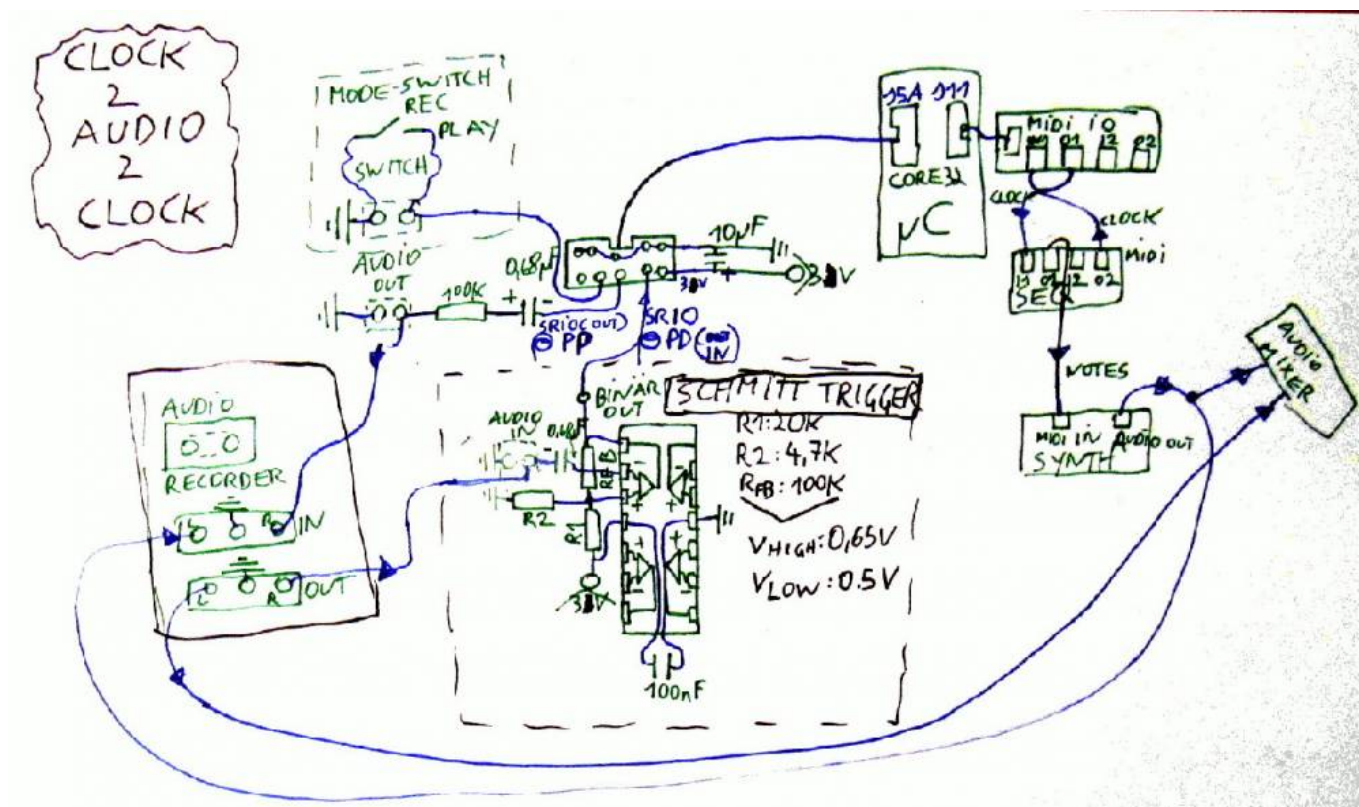 CLOCK
2
AUDIO
2
CLOCK
MODE-SWITCH
REC
PLAY
SWITCH
AUDIO
OUT
100K
+
-
0,68µF
10µF
+
SRIO(OUT)
PP
SRIO
PD
IN
J5A J11
CORE32
µC
MIDI IO
O1
I2
O2
CLOCK
CLOCK
MIDI
I1
O1
I2
O2
SEQ
NOTES
MIDI IN
AUDIO OUT
SYNTH
AUDIO
MIXER
AUDIO
RECORDER
L
R
IN
L
R
OUT
BINÄR
OUT
AUDIO
IN
RFB
R2
R1
100nF
SCHMITT TRIGGER
R1:20K
R2:4,7K
RFB:100K
VHIGH:0,65V
VLOW:0.5V